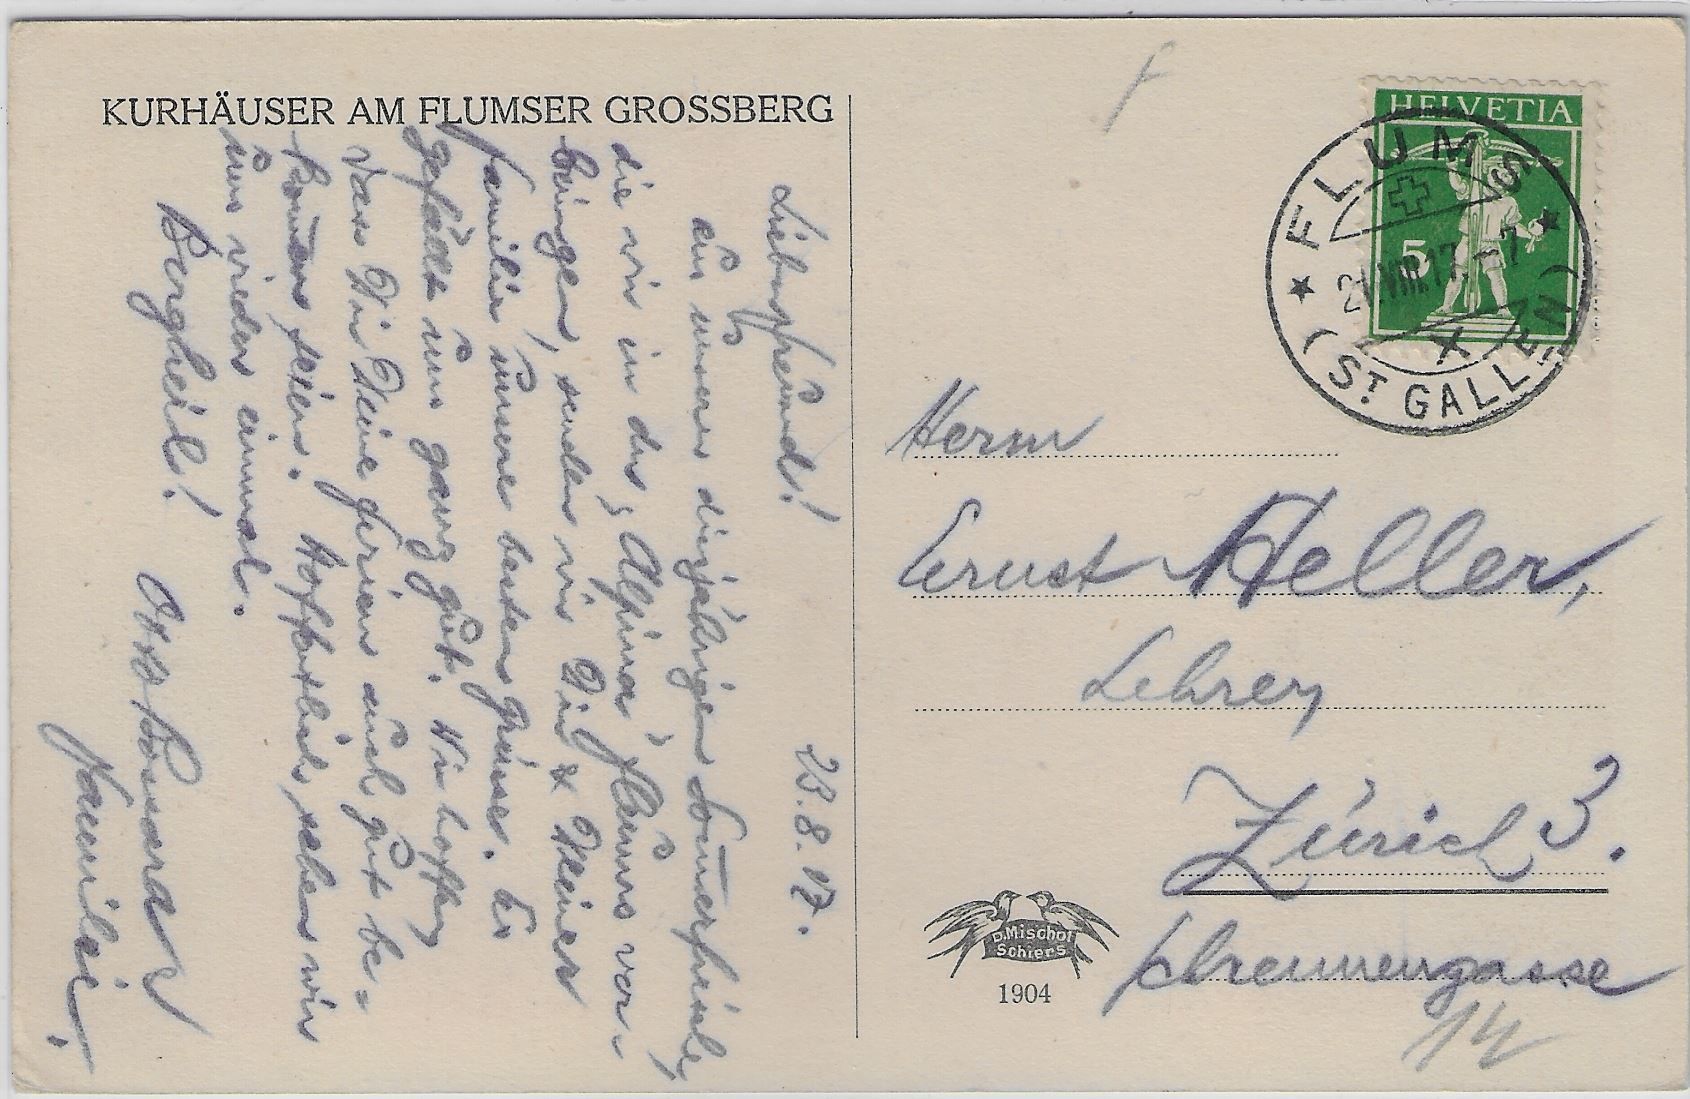 KURHÄUSER AM FLUMSER GROSSBERG
23.8.17.
Liebe Freunde!
Aus unserer diesjährigen Sommerfrische,
die wir in der „Alpina" Flums ver-
bringen, senden wir Dir & Deiner
Familie unsere besten Grüsse. Es
gefällt uns ganz gut. Wir hoffen,
dass Dir Deine Ferien auch gut be-
kommen seien. Hoffentlich sehen wir
uns wieder einmal.
Bergheil!
Otto
Familie.
HELVETIA
5
FLUMS
21.VIII.17.-7
(ST. GALLEN)
Herrn
Ernst Heller,
Lehrer,
Zürich 3.
Schrennengasse
14
D. Mischol
Schiers
1904